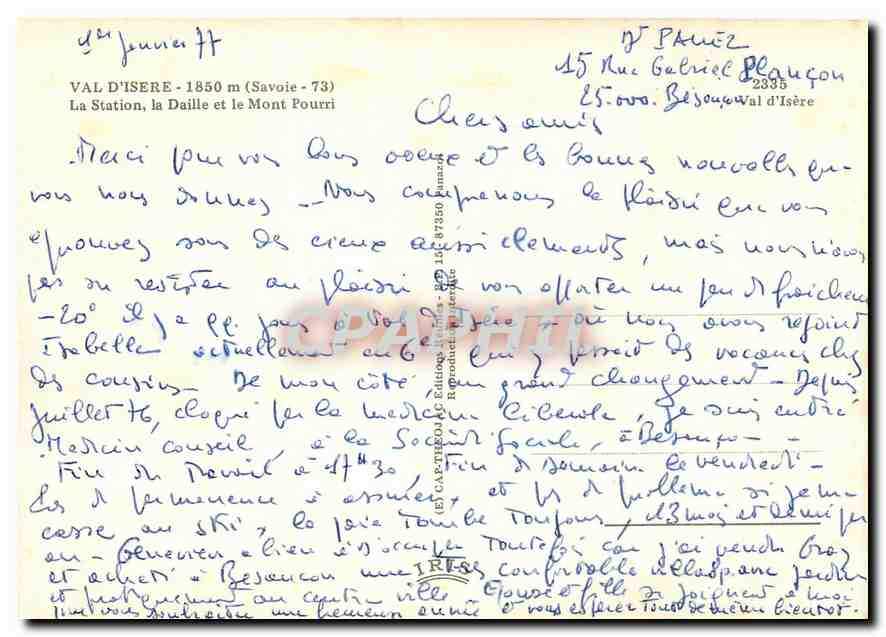 1er Janvier 77
Dr PAHEZ
15 Rue Gabriel Plançon
25.000. Besançon
VAL D'ISERE - 1850 m (Savoie - 73)
La Station, la Daille et le Mont Pourri
2335
Val d'Isère
Chers amis
Merci pour vos bons voeux et les bonnes nouvelles que
vous nous donnez - Nous comprenons le plaisir que vous
éprouvez sous des cieux aussi clements, mais nous n'avons
pas su résister au plaisir de vous apporter un peu de fraicheur
-20° il y a qq. jours à Val d'Isère - où nous avons rejoint
Isabelle actuellement en 6e qui y passait des vacances chez
des cousins - De mon côté, un grand changement - Depuis
Juillet 76, dégoûté par la medecine liberale, je suis entré
Medecin conseil, à la Sécurité Sociale, à Besançon -
Fin du travail à 17H30, Fin de semaine le vendredi -
Pas de permanence à assurer, et pas de probleme si je me
casse au ski, la paie tombe toujours, 13 mois et demi par
an - Genevieve a bien à s'occuper toutefois car j'ai vendu Gray
et acheté à Besançon une très confortable villa avec jardin
et pratiquement au centre ville - Epouse et fille se joignent à moi
pour vous souhaiter une heureuse année et vous espérer tout de même bientôt.
(E) CAP-THEOJAC Editions Réunies - B.P. 15 - 87350 Panazol
Reproduction Interdite
IRIS
CPAPHIL